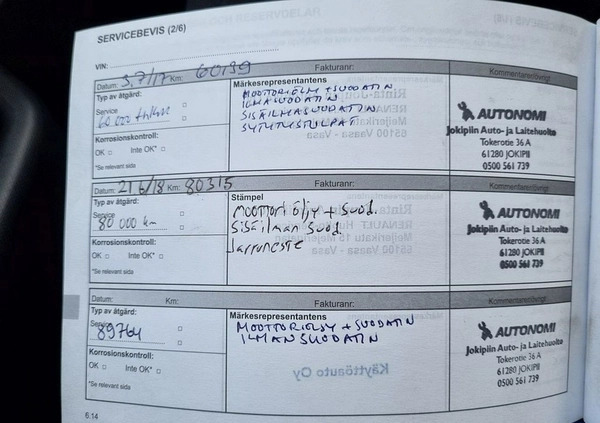 SERVICEBEVIS (2/6)
VIN:
Datum: 3.7/17 Km: 60139 Fakturanr: Kommentarer/övrigt
Typ av åtgärd:
Service
60 000 
Korrosionskontroll:
OK Inte OK*
*Se relevant sida
Märkesrepresentantens
MOOTTORIÖLJY + SUODATIN
ILMASUODATIN
SISÄILMASUODATIN
SYTYTYSTULPAT
AUTONOMI
Jokipiin Auto- ja Laitehuolto
Tokerotie 36 A
61280 JOKIPII
0500 561 739
Datum: 21 6/18 Km: 80315 Fakturanr: Kommentarer/övrigt
Typ av åtgärd:
Service
80 000 km
Korrosionskontroll:
OK Inte OK*
*Se relevant sida
Stämpel
Moottori öljy + suod.
Sisäilman suod.
Jarruneste
AUTONOMI
Jokipiin Auto- ja Laitehuolto
Tokerotie 36 A
61280 JOKIPII
0500 561 739
Datum: Km: Fakturanr: Kommentarer/övrigt
Typ av åtgärd:
Service
89764
Korrosionskontroll:
OK Inte OK*
*Se relevant sida
Märkesrepresentantens
MOOTTORIÖLJY + SUODATIN
ILMANSUODATIN
AUTONOMI
Jokipiin Auto- ja Laitehuolto
Tokerotie 36 A
61280 JOKIPII
0500 561 739
6.14